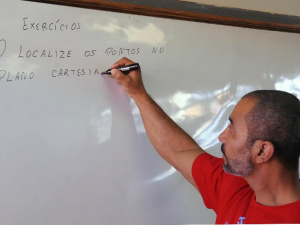 EXERCÍCIOS
) LOCALIZE OS PONTOS NO
PLANO CARTESIA